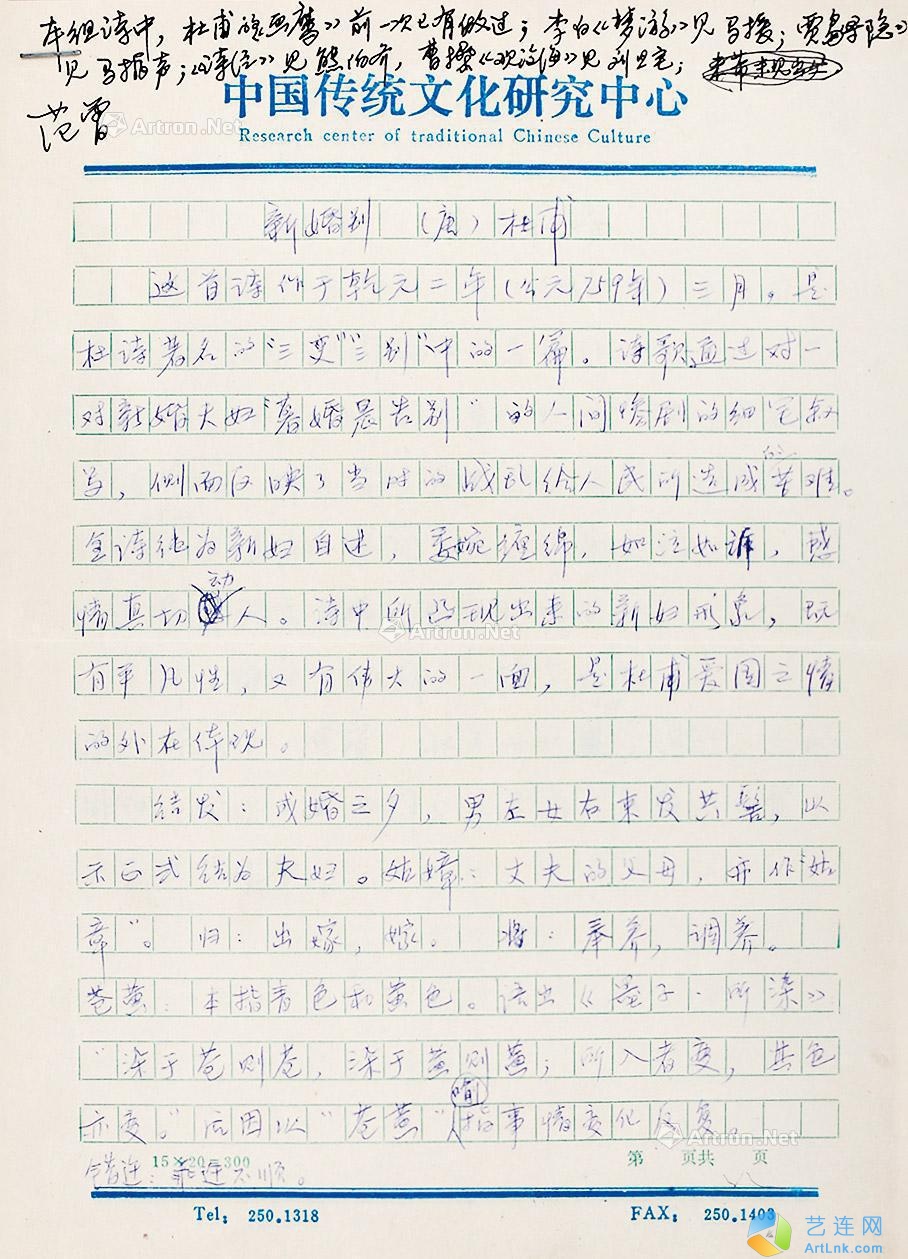 本组诗中，杜甫《画鹰》前一次已有做过；李白《梦游》见马援；贾岛《寻隐》
见马振声；《诗经》见熊伯齐，曹操《观沧海》见刘旦宅；
范曾
中国传统文化研究中心
Research center of traditional Chinese Culture
新婚别 （唐）杜甫
这首诗作于乾元二年（公元759年）三月。是
杜诗著名的“三吏”“三别”中的一篇。诗歌通过对一
对新婚夫妇“暮婚晨告别”的人间惨剧的细定叙
写，侧面反映了当时的战乱给人民所造成的苦难。
全诗纯为新妇自述，委婉缠绵，如泣如诉，感
情真切动人。诗中所凸现出来的新妇形象，既
有平凡性，又有伟大的一面，是杜甫爱国之情
的外在体现。
结发：成婚之夕，男左女右束发共髻，以
示正式结为夫妇。姑嫜：丈夫的父母，亦作“姑
章”。归：出嫁，嫁。将：奉养，调养。
苍黄：本指青色和黄色。语出《墨子·所染》
“染于苍则苍，染于黄则黄；所入者变，其色
亦变。”后因以“苍黄”喻指事情变化反复。
15×20=300 第 页共 页
错迕：乖迕不顺。
Tel: 250.1318 FAX: 250.1403
Artron.Net
Artron.Net
Artron.Net
艺连网
ArtLnk.com